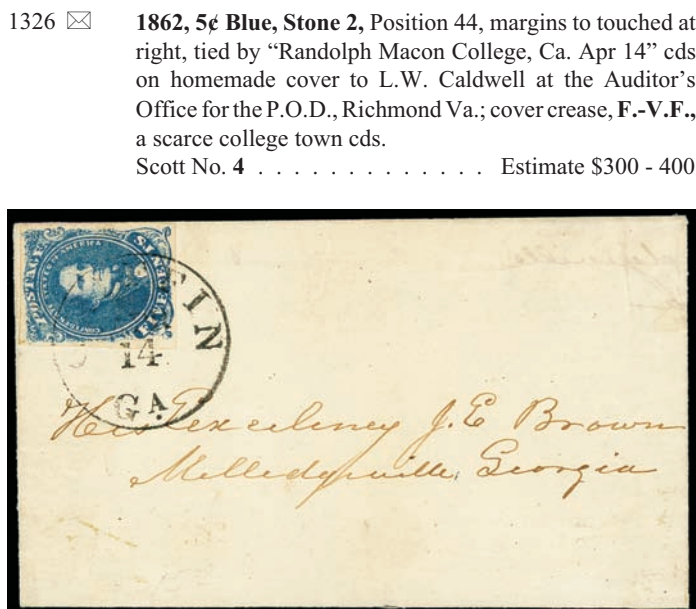 1326 ✉ 1862, 5¢ Blue, Stone 2, Position 44, margins to touched at
right, tied by “Randolph Macon College, Ca. Apr 14” cds
on homemade cover to L.W. Caldwell at the Auditor’s
Office for the P.O.D., Richmond Va.; cover crease, F.-V.F.,
a scarce college town cds.
Scott No. 4 . . . . . . . . . . . . . Estimate $300 - 400
POSTAGE
CONFEDERATE STATES OF AMERICA
FIVE
CENTS
FIN
14
GA.
His Excelency J. E Brown
Milledgeville, Georgia